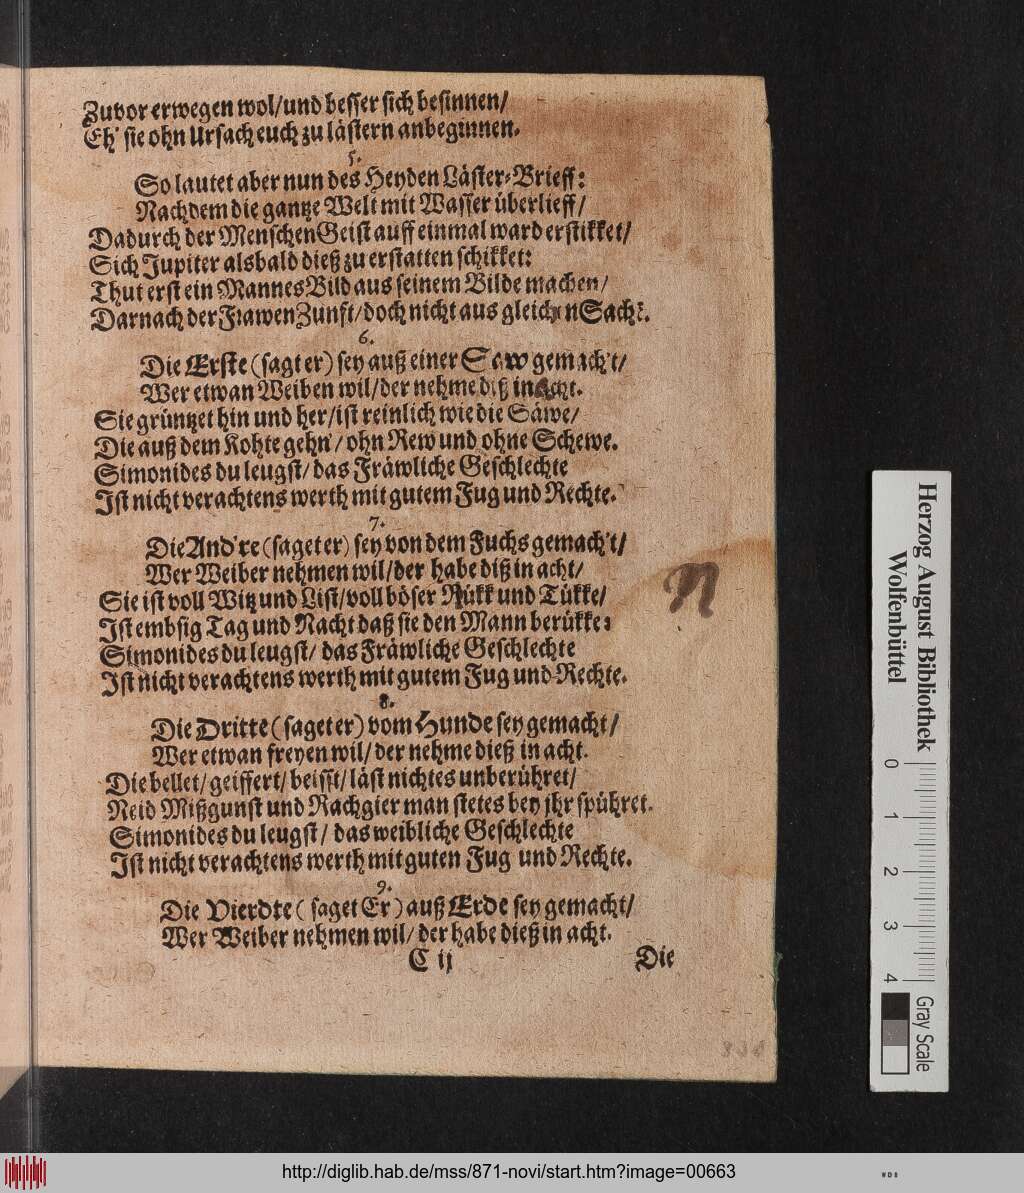 Zuvor erwegen wol/und besser sich besinnen/
Eh' sie ohn Ursach euch zu lästern anbeginnen.
5.
So lautet aber nun des Heyden Läster-Brieff:
Nachdem die gantze Welt mit Wasser überlieff/
Dadurch der Menschen Geist auff einmal ward erstikket/
Sich Jupiter alsbald dieß zu erstatten schikket:
Thut erst ein Mannes Bild aus seinem Bilde machen/
Darnach der Frawen Zunfft/doch nicht aus gleichen Sach?.
6.
Die Erste (sagt er) sey auß einer Saw gemach't/
Wer etwan Weiben wil/der nehme diß in acht.
Sie grüntzet hin und her/ist reinlich wie die Säwe/
Die auß dem Kohte gehn'/ohn Rew und ohne Schewe.
Simonides du leugst/das Fräwliche Geschlechte
Ist nicht verachtens werth mit gutem Fug und Rechte.
7.
Die And're (saget er) sey von dem Fuchs gemach't/
Wer Weiber nehmen wil/der habe diß in acht/
Sie ist voll Witz und List/voll böser Rükk und Tükke/
Ist embsig Tag und Nacht daß sie den Mann berükke:
Simonides du leugst/das Fräwliche Geschlechte
Ist nicht verachtens werth mit gutem Fug und Rechte.
8.
Die Dritte (saget er) vom Hunde sey gemacht/
Wer etwan freyen wil/der nehme dieß in acht.
Die bellet/geiffert/beisst/läst nichtes unberühret/
Neid Mißgunst und Rachgier man stetes bey jhr spühret.
Simonides du leugst/das weibliche Geschlechte
Ist nicht verachtens werth mit guten Fug und Rechte.
9.
Die Vierdte (saget Er) auß Erde sey gemacht/
Wer Weiber nehmen wil/der habe dieß in acht.
C ij
Die
Herzog August Bibliothek
Wolfenbüttel
0 1 2 3 4
Gray Scale
http://diglib.hab.de/mss/871-novi/start.htm?image=00663